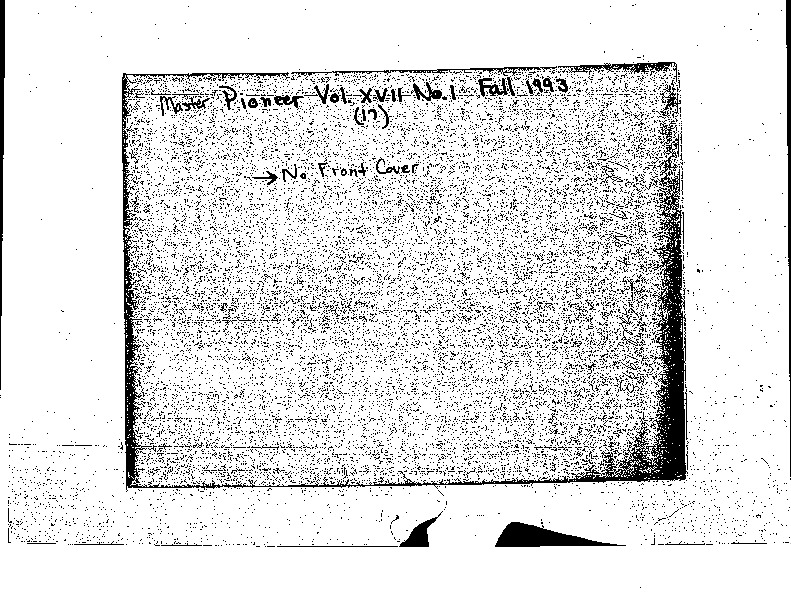 Master Pioneer Vol. XVII No. 1 Fall 1993
(17)
→ No Front Cover